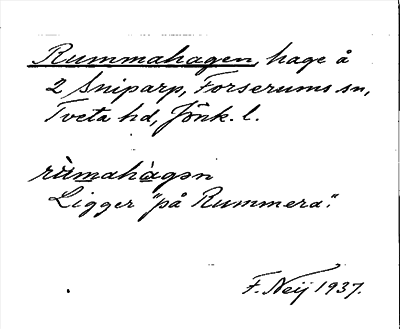 Rummahagen, hage å
2 Sniparp, Forserums sn,
Tveta hd, Jönk. l.
rùmahàgən
Ligger "på Rummera".
F. Neij 1937.